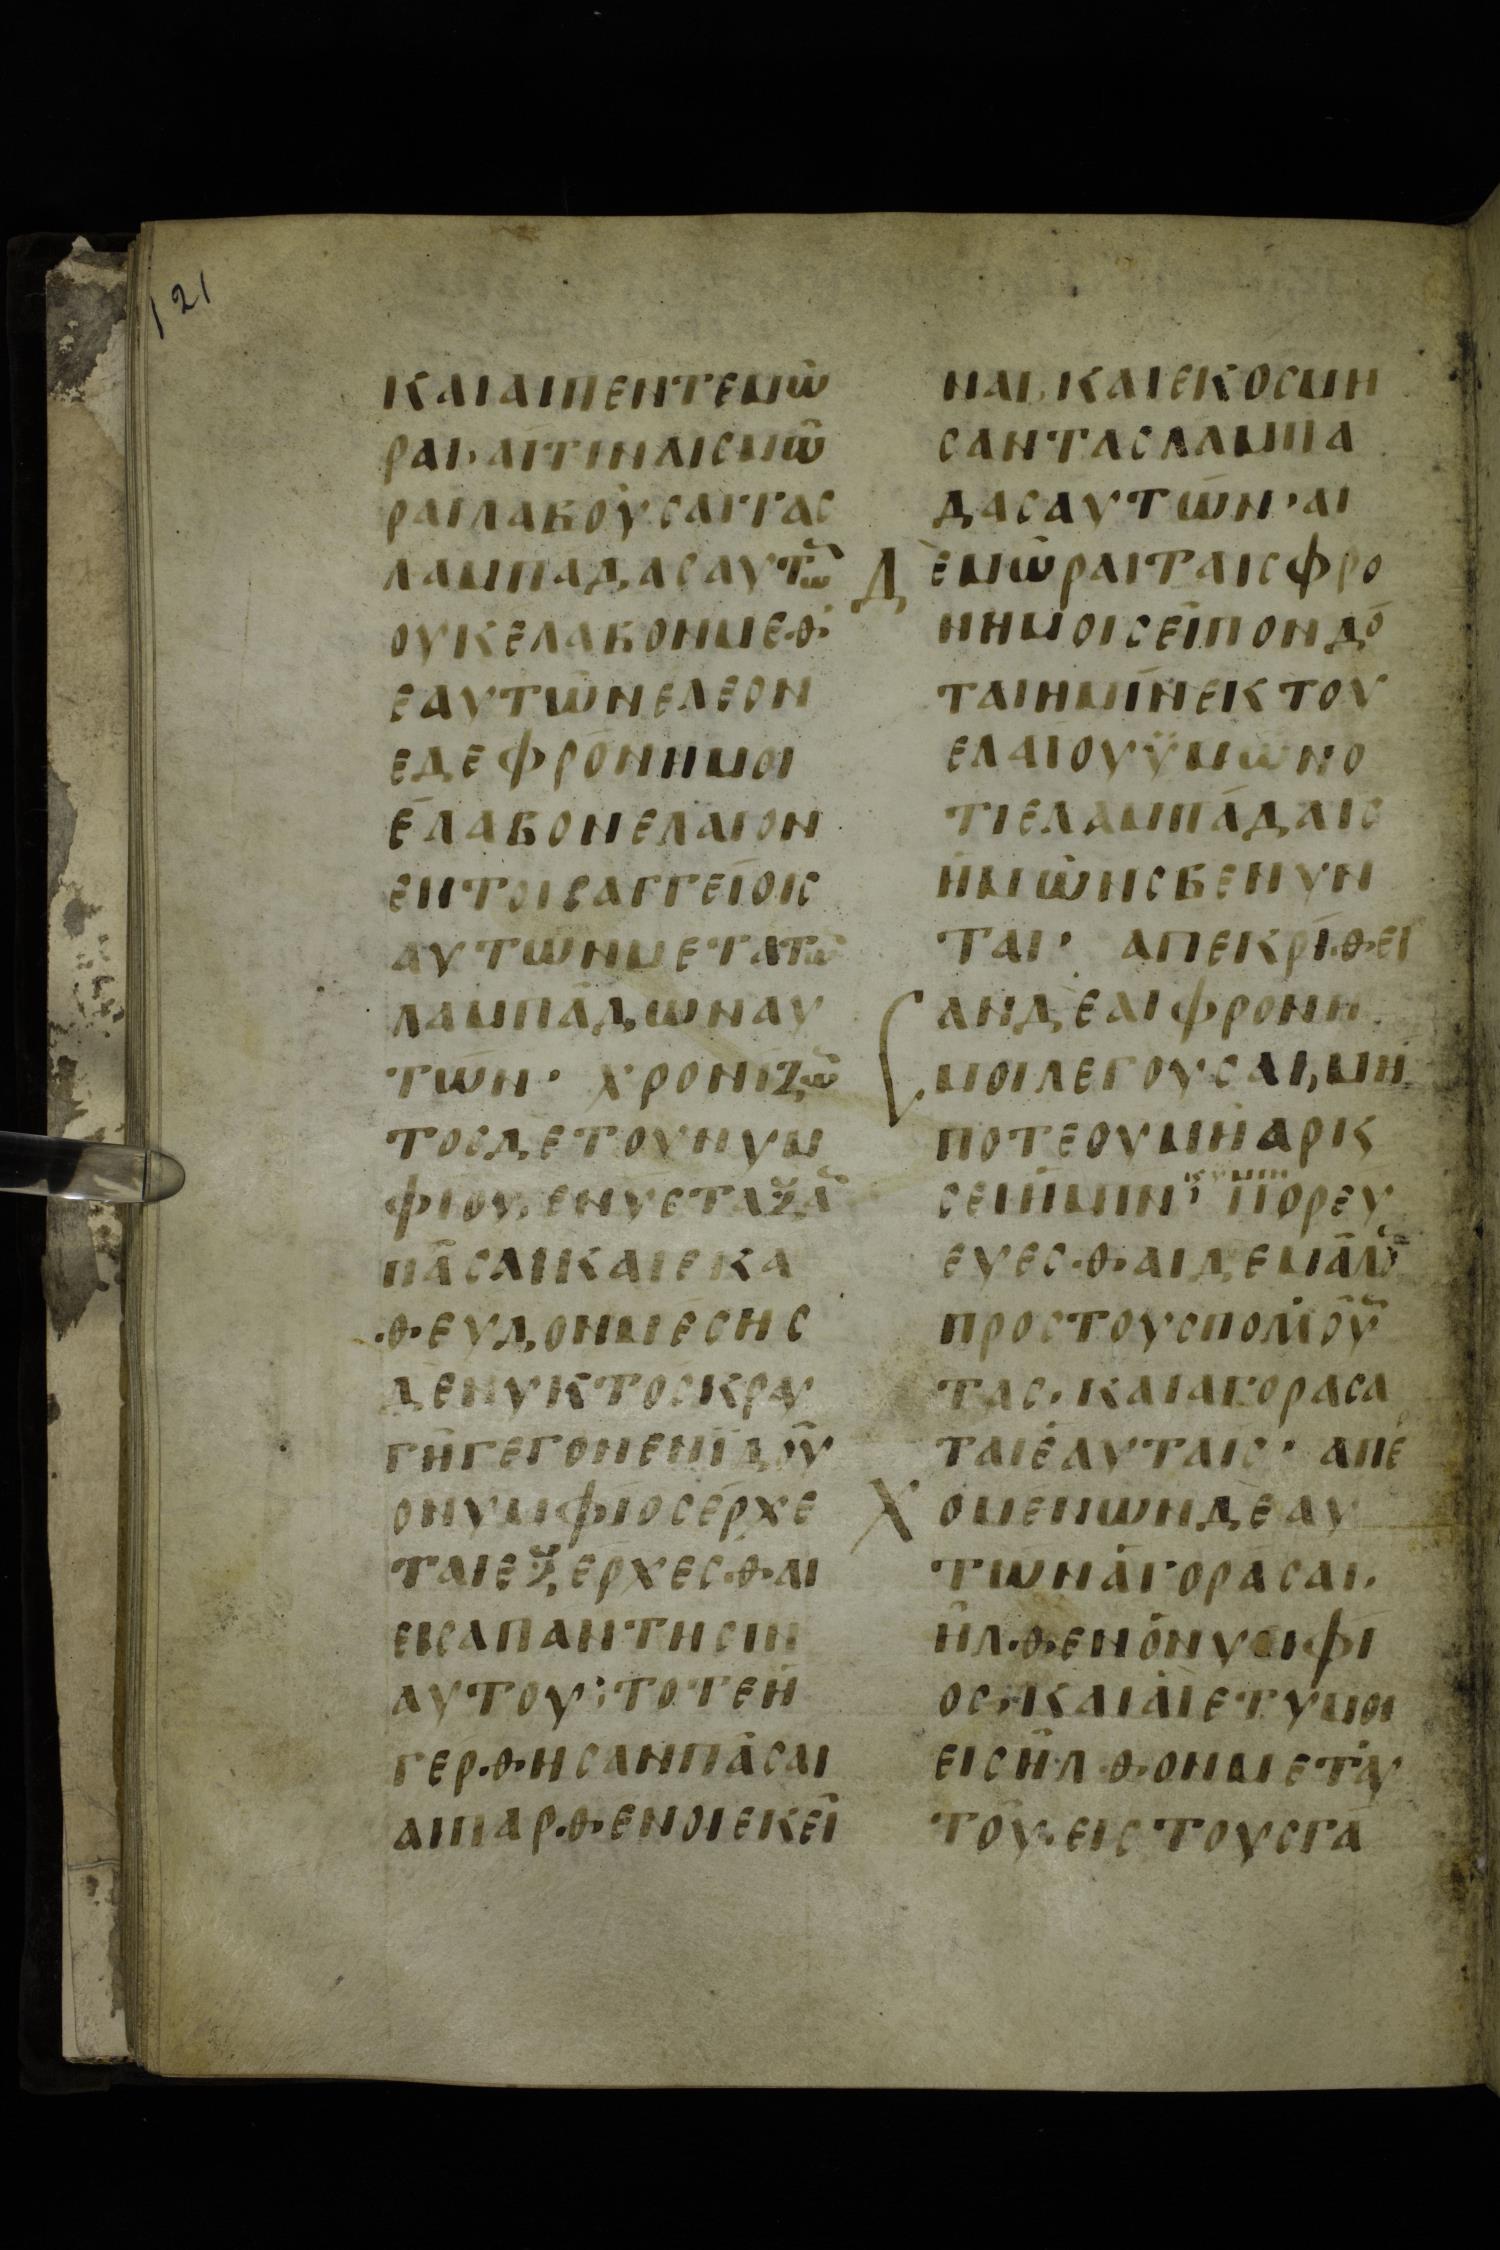 121
ΚΑΙΑΙΠΕΝΤΕΜΩ
ΡΑΙ·ΑΙΤΙΝΑΙCΜΩ
ΡΑΙΛΑΒΟΥCΑΙΤΑC
ΛΑΜΠΑΔΑCΑΥΤΩ
ΟΥΚΕΛΑΒΟΝΜΕΘ
ΕΑΥΤΩΝΕΛΕΟΝ
ΕΔΕΦΡΟΝΗΜΟΙ
ΕΛΑΒΟΝΕΛΑΙΟΝ
ΕΝΤΟΙCΑΓΓΕΙΟΙC
ΑΥΤΩΝΜΕΤΑΤΩ
ΛΑΜΠΑΔΩΝΑΥ
ΤΩΝ· ΧΡΟΝΙΖΩ
ΤΟCΔΕΤΟΥΝΥΜ
ΦΙΟΥ·ΕΝΥCΤΑΞΑ
ΠΑCΑΙΚΑΙΕΚΑ
ΘΕΥΔΟΝΜΕCΗC
ΔΕΝΥΚΤΟCΚΡΑΥ
ΓΗΓΕΓΟΝΕΝΙΔΟΥ
ΟΝΥΜΦΙΟCΕΡΧΕ
ΤΑΙΕΞΕΡΧΕCΘΑΙ
ΕΙCΑΠΑΝΤΗCΙΝ
ΑΥΤΟΥ·ΤΟΤΕΗ
ΓΕΡΘΗCΑΝΠΑCΑΙ
ΑΙΠΑΡΘΕΝΟΙΕΚΕΙ
ΝΑΙ·ΚΑΙΕΚΟCΜΗ
CΑΝΤΑCΛΑΜΠΑ
ΔΑCΑΥΤΩΝ·ΑΙ
ΔΕΜΩΡΑΙΤΑΙCΦΡΟ
ΝΗΜΟΙCΕΙΠΟΝΔΟ
ΤΑΙΗΜΙΝΕΚΤΟΥ
ΕΛΑΙΟΥΫΜΩΝΟ
ΤΙΕΛΑΜΠΑΔΑΙC
ΗΜΩΝCΒΕΝΥΝ
ΤΑΙ· ΑΠΕΚΡΙΘΕΙ
CΑΝΔΕΑΙΦΡΟΝΗ
ΜΟΙΛΕΓΟΥCΑΙ,ΜΗ
ΠΟΤΕΟΥΜΗΑΡΚ
CΕΙΗΜΙΝ· ΚΥΜΙΝ ΠΟΡΕΥ
ΕΥΕCΘΑΙΔΕΜΑΛΟ
ΠΡΟCΤΟΥCΠΟΛΟΥ
ΤΑC·ΚΑΙΑΓΟΡΑCΑ
ΤΑΙΕΑΥΤΑΙC· ΑΠΕ
ΧΟΜΕΝΩΝΔΕΑΥ
ΤΩΝΑΓΟΡΑCΑΙ·
ΗΛΘΕΝΟΝΥΜΦΙ
ΟC·ΚΑΙΑΙΕΤΥΜΟΙ
ΕΙCΗΛΘΟΝΜΕΤΑΥ
ΤΟΥ·ΕΙCΤΟΥCΓΑ